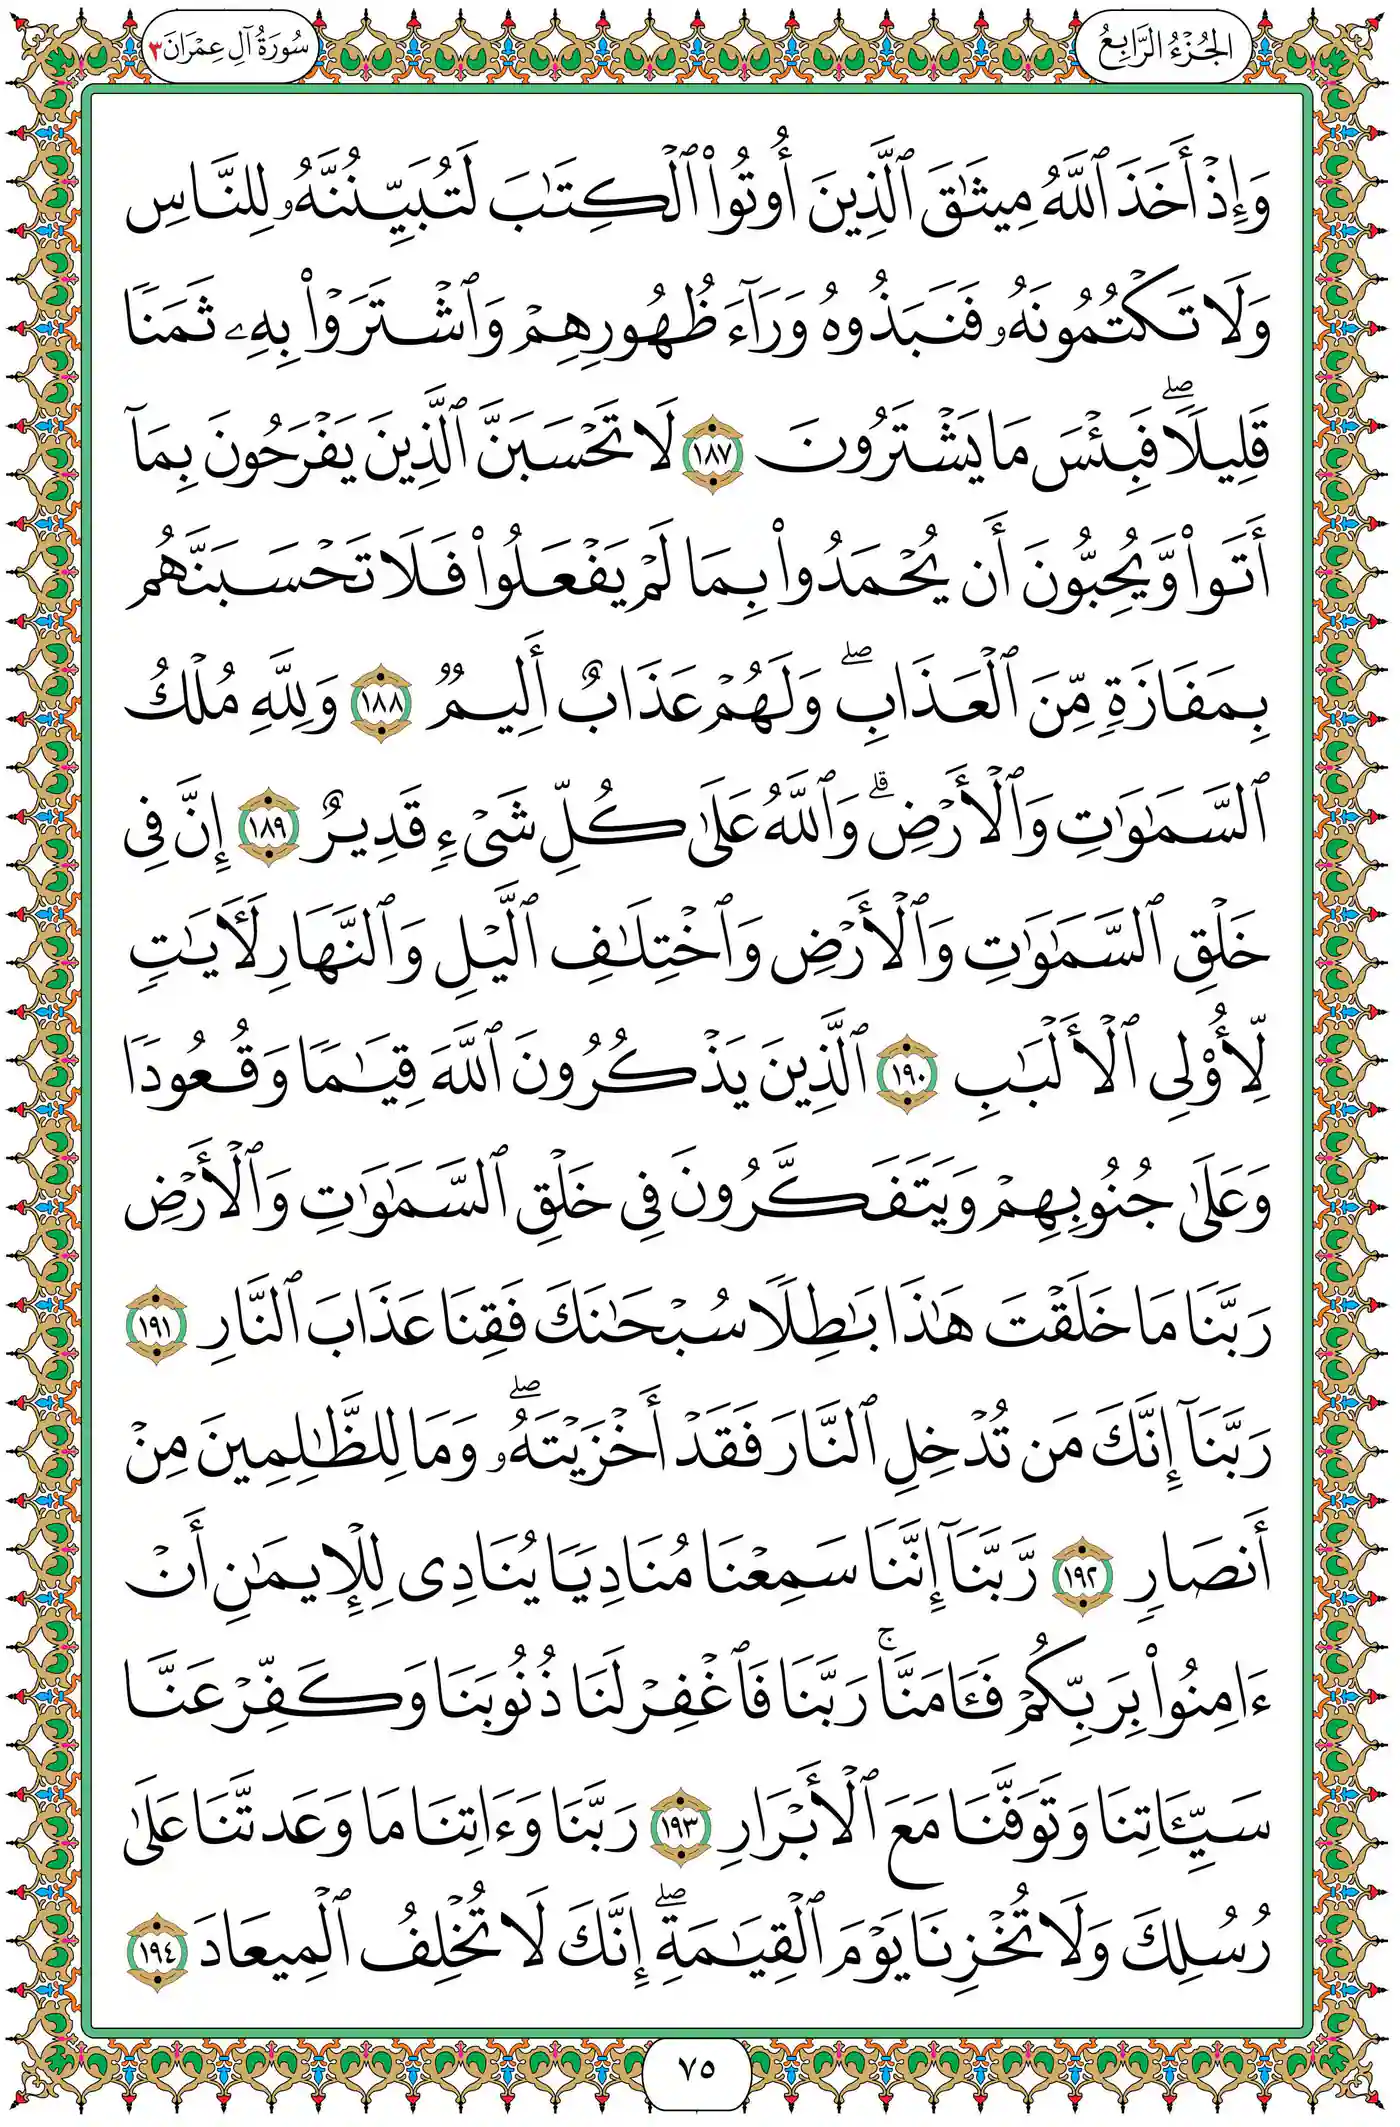 الجُزْءُ الرَّابِعُ
سُورَةُ آلِ عِمْرَانَ ٣
وَإِذْ أَخَذَ ٱللَّهُ مِيثَٰقَ ٱلَّذِينَ أُوتُوا۟ ٱلْكِتَٰبَ لَتُبَيِّنُنَّهُۥ لِلنَّاسِ
وَلَا تَكْتُمُونَهُۥ فَنَبَذُوهُ وَرَآءَ ظُهُورِهِمْ وَٱشْتَرَوْا۟ بِهِۦ ثَمَنًا
قَلِيلًا ۖ فَبِئْسَ مَا يَشْتَرُونَ ١٨٧ لَا تَحْسَبَنَّ ٱلَّذِينَ يَفْرَحُونَ بِمَآ
أَتَوا۟ وَّيُحِبُّونَ أَن يُحْمَدُوا۟ بِمَا لَمْ يَفْعَلُوا۟ فَلَا تَحْسَبَنَّهُم
بِمَفَازَةٍ مِّنَ ٱلْعَذَابِ ۖ وَلَهُمْ عَذَابٌ أَلِيمٌ ١٨٨ وَلِلَّهِ مُلْكُ
ٱلسَّمَٰوَٰتِ وَٱلْأَرْضِ ۗ وَٱللَّهُ عَلَىٰ كُلِّ شَىْءٍ قَدِيرٌ ١٨٩ إِنَّ فِى
خَلْقِ ٱلسَّمَٰوَٰتِ وَٱلْأَرْضِ وَٱخْتِلَٰفِ ٱلَّيْلِ وَٱلنَّهَارِ لَـَٔايَٰتٍ
لِّأُو۟لِى ٱلْأَلْبَٰبِ ١٩٠ ٱلَّذِينَ يَذْكُرُونَ ٱللَّهَ قِيَٰمًا وَقُعُودًا
وَعَلَىٰ جُنُوبِهِمْ وَيَتَفَكَّرُونَ فِى خَلْقِ ٱلسَّمَٰوَٰتِ وَٱلْأَرْضِ
رَبَّنَا مَا خَلَقْتَ هَٰذَا بَٰطِلًا سُبْحَٰنَكَ فَقِنَا عَذَابَ ٱلنَّارِ ١٩١
رَبَّنَآ إِنَّكَ مَن تُدْخِلِ ٱلنَّارَ فَقَدْ أَخْزَيْتَهُۥ ۖ وَمَا لِلظَّٰلِمِينَ مِنْ
أَنصَارٍ ١٩٢ رَّبَّنَآ إِنَّنَا سَمِعْنَا مُنَادِيًا يُنَادِى لِلْإِيمَٰنِ أَنْ
ءَامِنُوا۟ بِرَبِّكُمْ فَـَٔامَنَّا ۚ رَبَّنَا فَٱغْفِرْ لَنَا ذُنُوبَنَا وَكَفِّرْ عَنَّا
سَيِّـَٔاتِنَا وَتَوَفَّنَا مَعَ ٱلْأَبْرَارِ ١٩٣ رَبَّنَا وَءَاتِنَا مَا وَعَدتَّنَا عَلَىٰ
رُسُلِكَ وَلَا تُخْزِنَا يَوْمَ ٱلْقِيَٰمَةِ ۖ إِنَّكَ لَا تُخْلِفُ ٱلْمِيعَادَ ١٩٤
٧٥